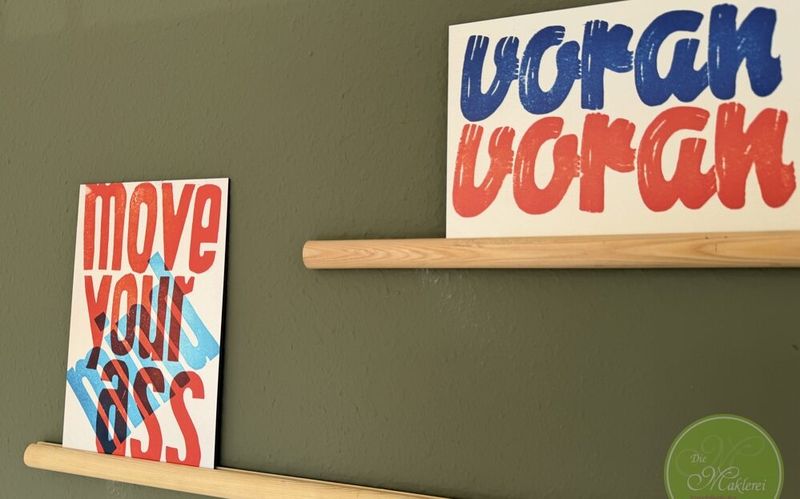 voran
voran
move
your
mind
ass
Die
Maklerei